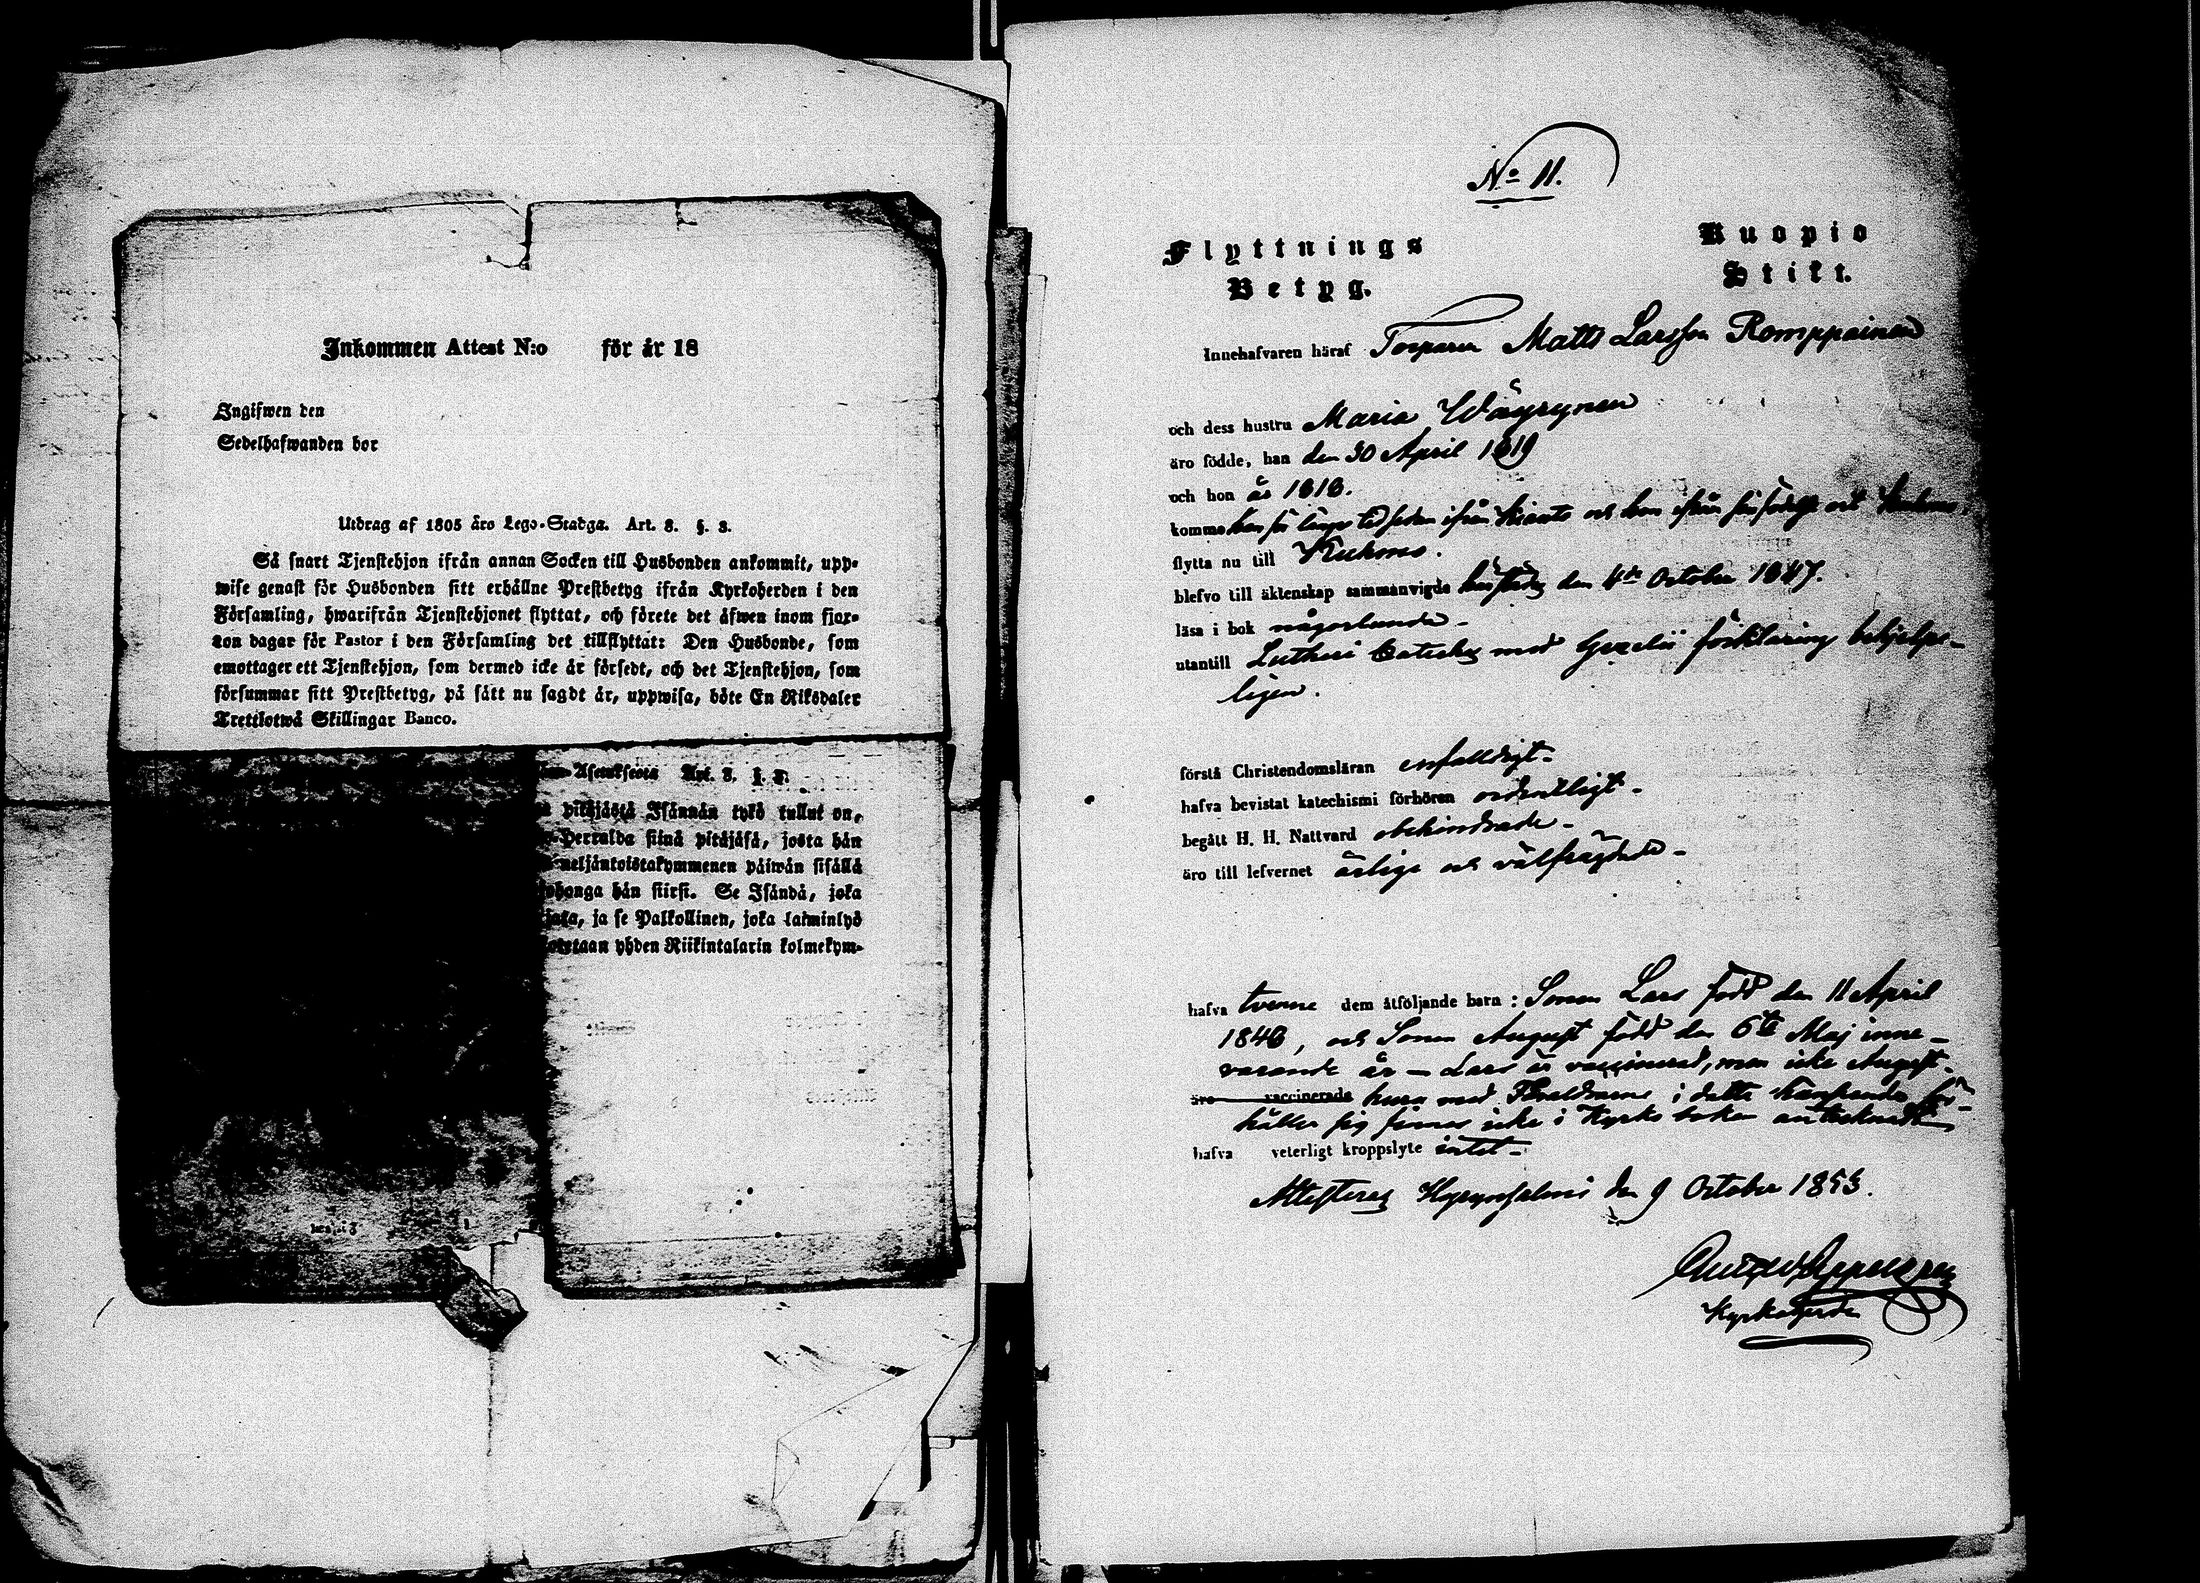 Inkommen Attest N:o för år 18
Ingifwen den
Sedelhafwanden bor
Utdrag af 1805 års Lego-Stadga. Art. 8. §. 3.
Så snart Tjenstehjon ifrån annan Socken till Husbonden ankommit, upp-
wise genast för Husbonden sitt erhållne Prestbetyg ifrån Kyrkoherden i den
Församling, hwarifrån Tjenstehjonet flyttat, och förete det äfwen inom fjor-
ton dagar för Pastor i den Församling det tillflyttat: Den Husbonde, som
emottager ett Tjenstehjon, som dermed icke är försedt, och det Tjenstehjon, som
försummar sitt Prestbetyg, på sätt nu sagdt är, uppwisa, böte En Riksdaler
Trettiotwå Skillingar Banco.
Asetuksesta Art. 8. §. 3.
pitäjästä Isännän tykö tullut on,
Herralda siinä pitäjäsä, josta hän
neljäntoistakymmenen päiwän sisällä
hän siirsi. Se Isändä, joka
ja se Palkollinen, joka laiminlyö
yhden Riikintalarin kolmekym-
No 11.
Flyttnings
Betyg.
Kuopio
Stift.
Innehafvaren häraf Torparen Matts Larsson Romppainen
och dess hustru Maria Wäyrynen
äro födde, han den 30 April 1819
och hon år 1818.
komma han för länge sedan ifrån Kianto och hon ifrån sin födelse ort Kuhmo,
flytta nu till Kuhmo.
blefvo till äktenskap sammanvigde den 4de October 1847.
läsa i bok någorlunda -
utantill Lutheri Cateches med Gezelii förklaring behjelpe-
ligen.
förstå Christendomsläran enfaldigt -
hafva bevistat katechismi förhören ordentligt -
begått H. H. Nattvard obehindrade -
äro till lefvernet ärlige och välfrägdade -
hafva tvenne dem åtföljande barn: Sonen Lars född den 11 April
1848, och Sonen August född den 6te Maj inne-
varande år - Lars är vaccinerad, men icke August.
äro vaccinerade huru med Föräldrarne i detta hänseende för-
håller sig finnes icke i Kyrko boken antecknadt
hafva veterligt kroppslyte intet -
Attesteras Hyrynsalmi den 9 October 1853.
Appelgren
Kyrkoherde